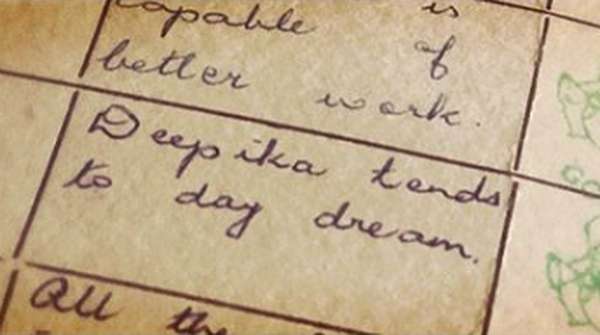 capable is
of
better work.
Deepika tends
to day dream.
All the